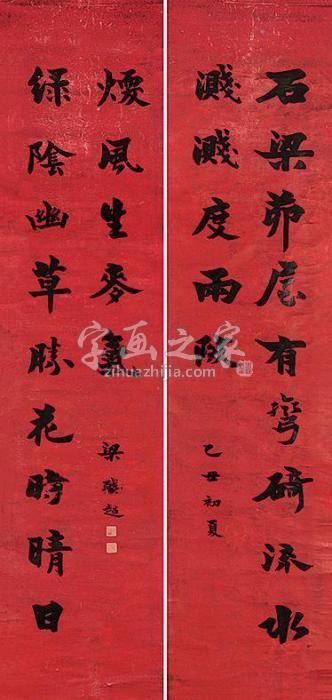 石梁茆屋有彎碕流水
濺濺度兩陂
乙丑初夏
綠陰幽草勝花時晴日
煖風生麥氣
梁啟超
字画之家
zihuazhijia.com